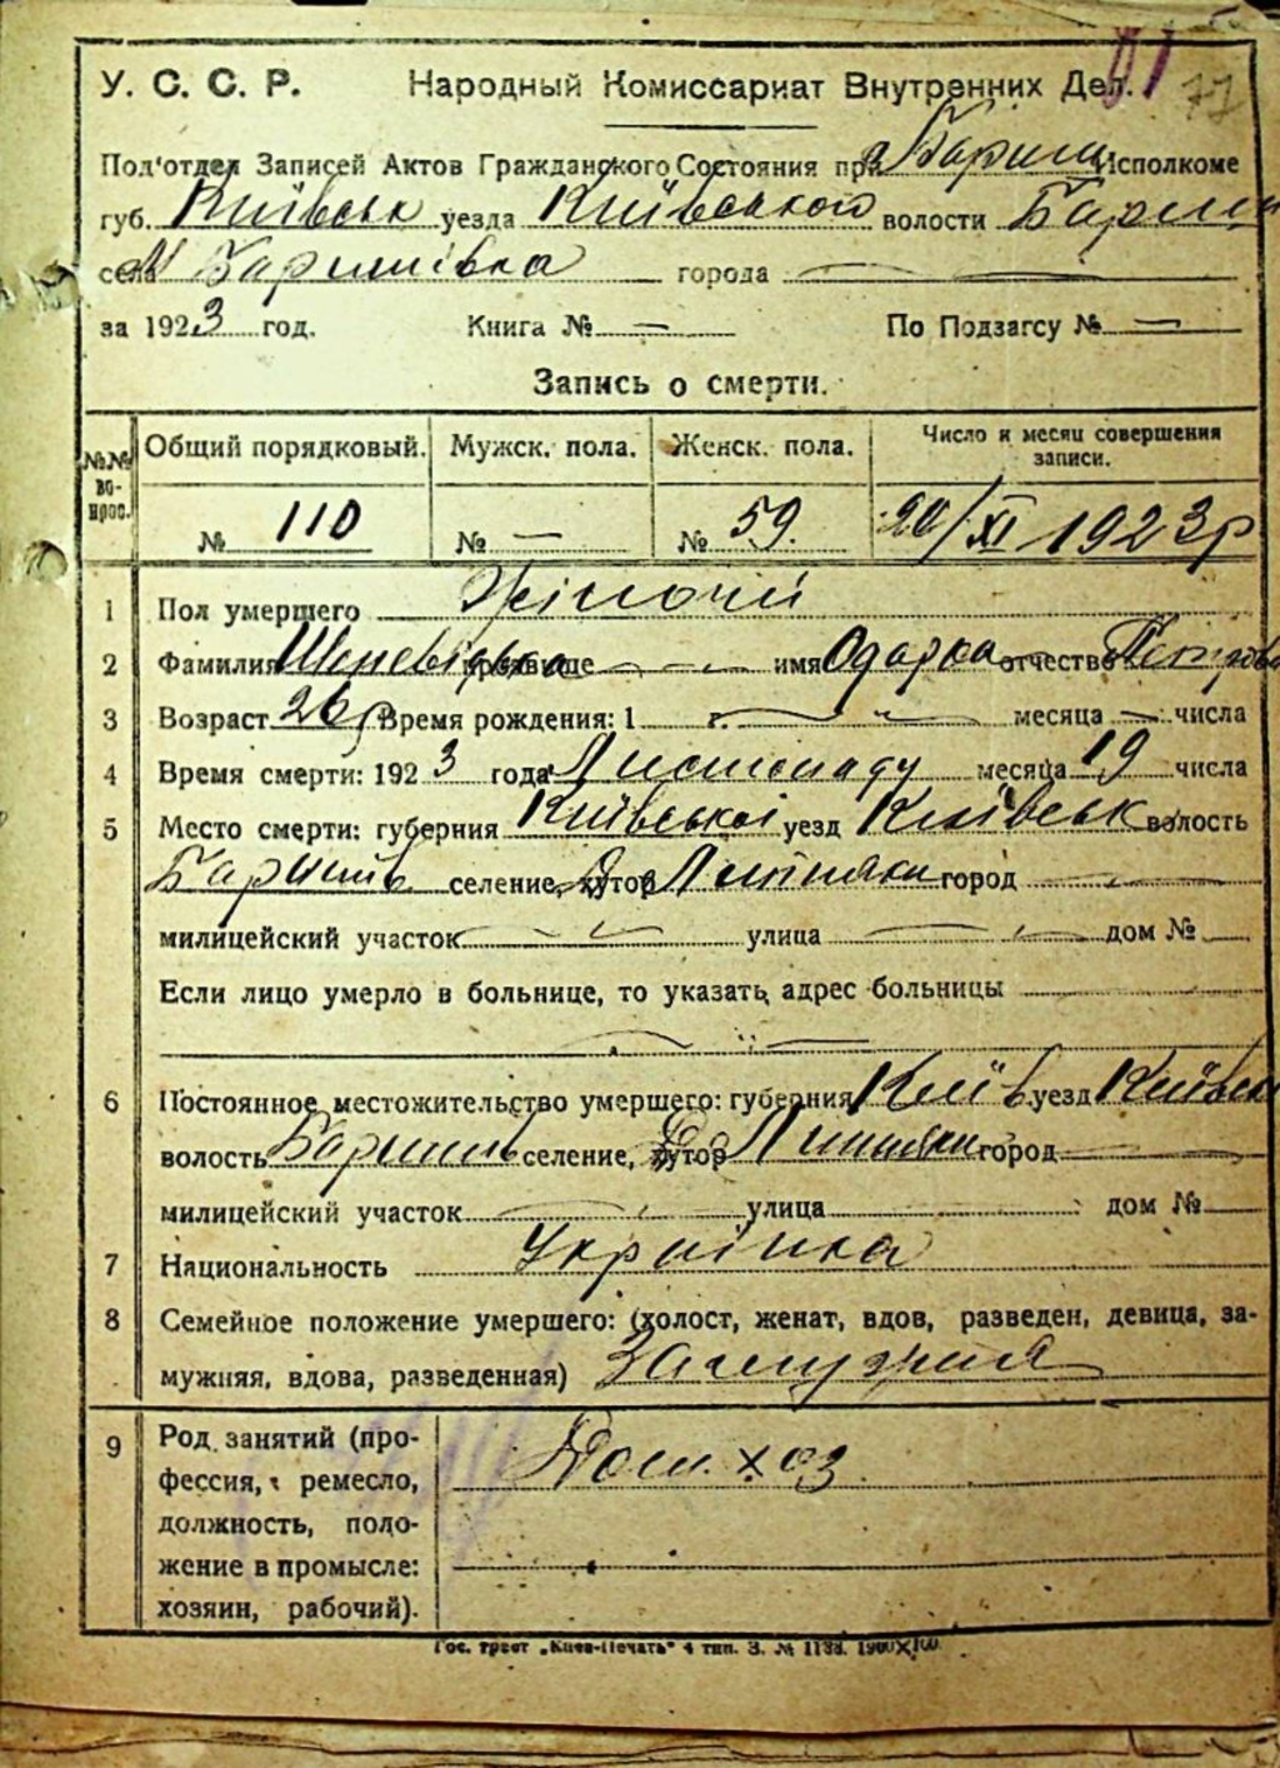 У. С. С. Р. Народный Комиссариат Внутренних Дел. 77
Под'отдел Записей Актов Гражданского Состояния при Бариш Исполкоме
губ. Київськ уезда Київського волости Бариш
села М Баришівка города
за 1923 год. Книга № — По Подзагсу № —
Запись о смерти.
№№ вопрос. Общий порядковый. Мужск. пола. Женск. пола. Число и месяц совершения записи.
№ 110 № — № 59. 20/XI 1923р
1 Пол умершего Жіночий
2 Фамилия прозвище имя Одарка отчество Петрова
3 Возраст 26 р Время рождения: 1 г. месяца — числа
4 Время смерти: 1923 года Листопаду месяца 19 числа
5 Место смерти: губерния Київської уезд Київськ волость
Баришів селение, хутор город
милицейский участок улица дом №
Если лицо умерло в больнице, то указать адрес больницы
6 Постоянное местожительство умершего: губерния Київ уезд Київськ
волость Баришів селение, хутор город
милицейский участок улица дом №
7 Национальность Українка
8 Семейное положение умершего: (холост, женат, вдов, разведен, девица, за-
мужняя, вдова, разведенная) Замужня
9 Род занятий (про- Дом. хоз.
фессия, ремесло,
должность, поло-
жение в промысле:
хозяин, рабочий).
Гос. трест „Киев-Печать" 4 тип. З. №